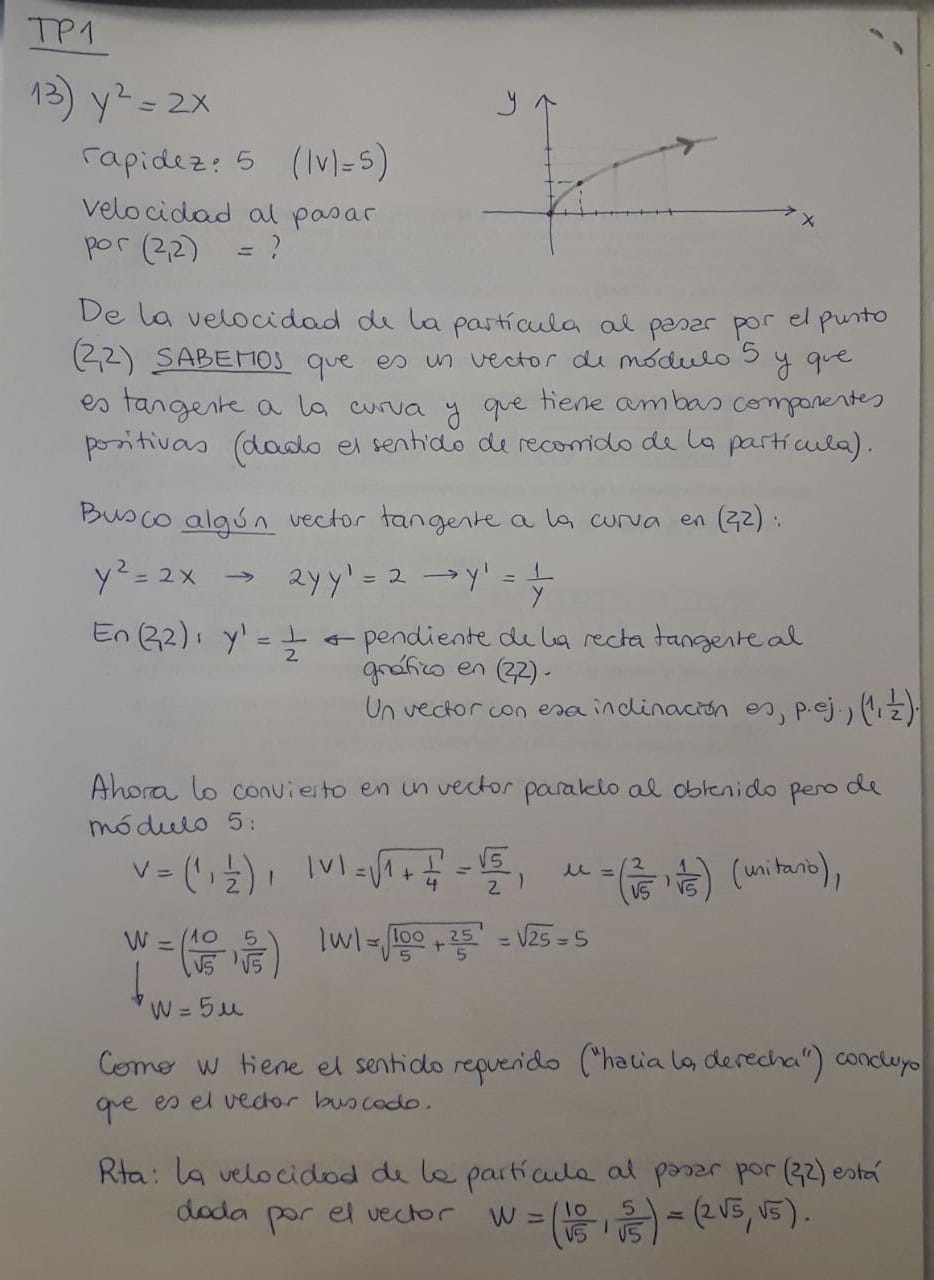 TP1
13) y² = 2x
y
rapidez: 5 (|v|=5)
velocidad al pasar
x
por (2,2) = ?
De la velocidad de la partícula al pasar por el punto
(2,2) SABEMOS que es un vector de módulo 5 y que
es tangente a la curva y que tiene ambas componentes
positivas (dado el sentido de recorrido de la partícula).
Busco algún vector tangente a la curva en (2,2):
y² = 2x → 2yy' = 2 → y' = 1/y
En (2,2): y' = 1/2 ← pendiente de la recta tangente al
gráfico en (2,2).
Un vector con esa inclinación es, p.ej., (1, 1/2).
Ahora lo convierto en un vector paralelo al obtenido pero de
módulo 5:
V = (1, 1/2), |V| = √(1 + 1/4) = √5/2, u = (2/√5, 1/√5) (unitario),
W = (10/√5, 5/√5) |W| = √(100/5 + 25/5) = √25 = 5
↓ W = 5u
Como W tiene el sentido requerido ("hacia la derecha") concluyo
que es el vector buscado.
Rta: la velocidad de la partícula al pasar por (2,2) está
dada por el vector W = (10/√5, 5/√5) = (2√5, √5).